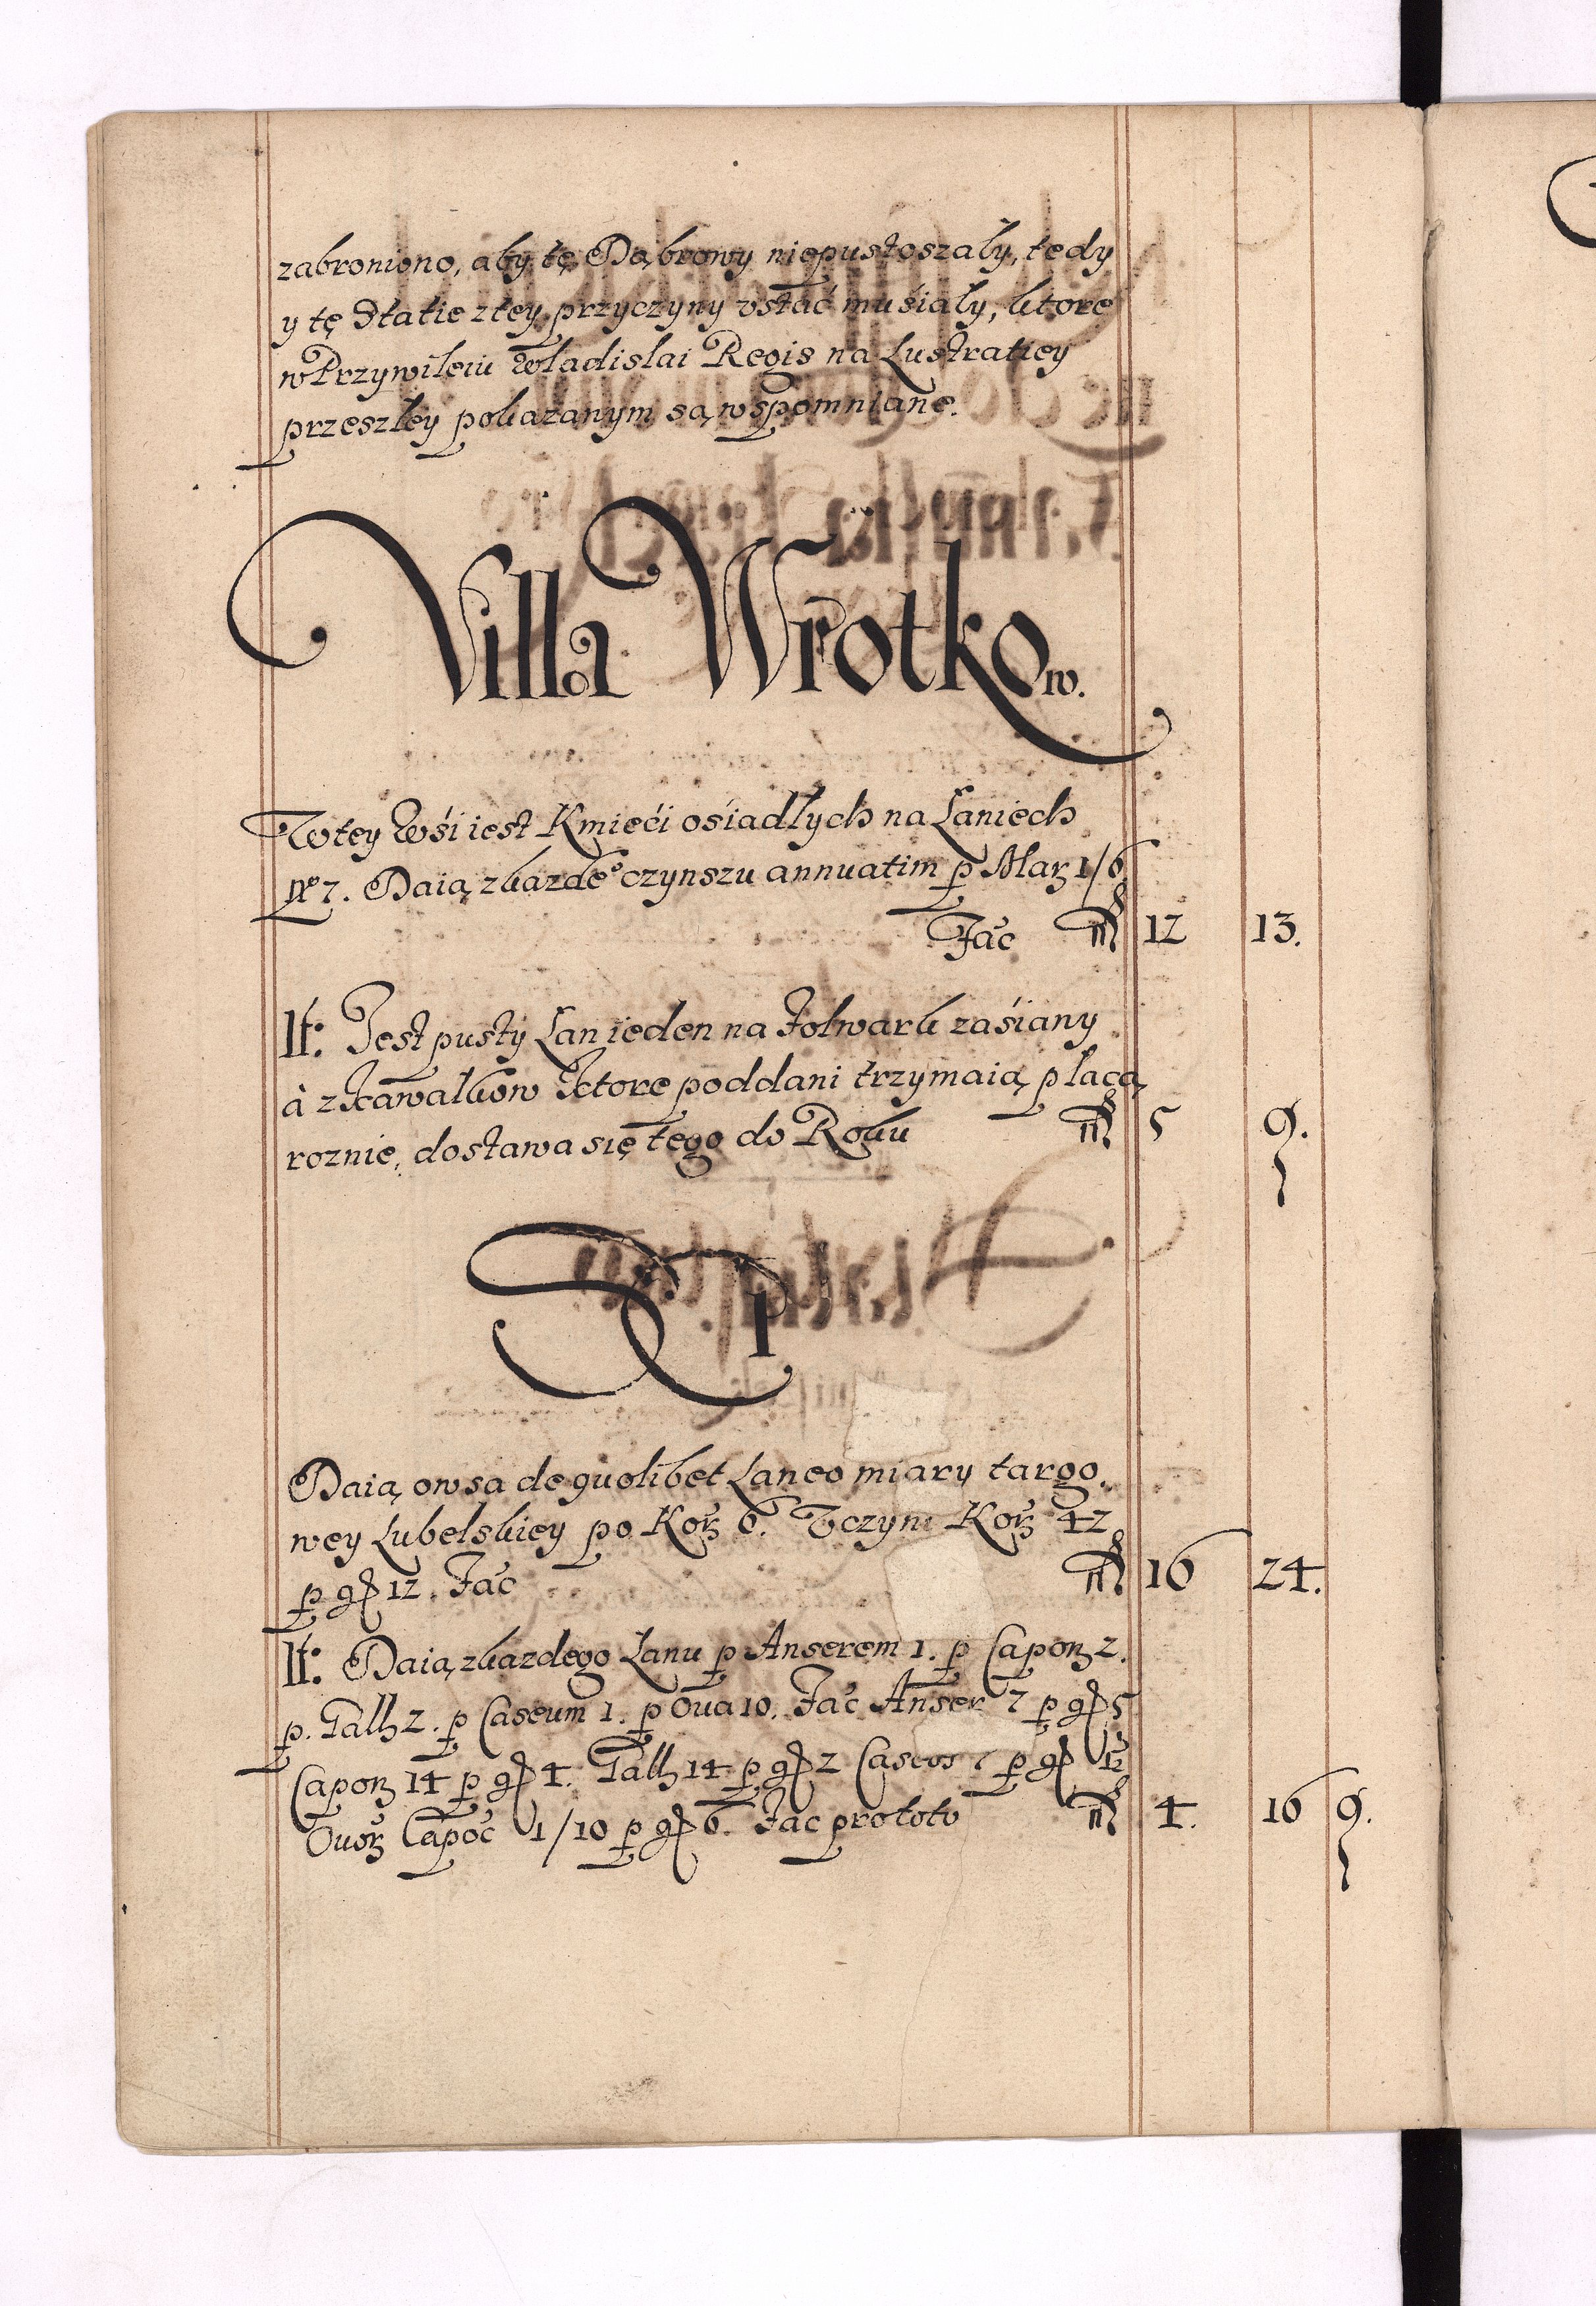 zabroniono, aby tę Dąbrowy niepustoszały, tedy
y tę Statie z tey przyczyny vstać muśiały, ktore
w Przywileiu Wladislai Regis na Lustratiey
przeszłey pokazanym są wspomniane.
Villa Wrotkow.
W tey Wśi iest Kmieći ośiadłych na Łaniech
Nº 7. Daią z kazdeº czynszu annuatim p Marz 1/6
Fac 12 13.
It: Jest pusty Łan ieden na Folwark zaśiany
à z kawałkow ktore poddani trzymaią, płacą
roznie, dostawa się tego do Roku 5 9.
Daią owsa de quolibet Laneo miary targo,
wey Lubelskiey po Korz 6. Vczyni Korz 42
p gr 12. Fac 16 24.
It: Daią z kazdego Łanu p Anserem 1. p Caporz 2.
p. Gall 2. p Caseum 1. p Oua 10. Fac Anser 7 p gr 5
Caporz 14 p gr 4. Gall 14 p gr 2 Caseos 7 p gr 1½
Ouorz Capoc 1/10 p gr 6. Fac pro toto 4. 16 9.